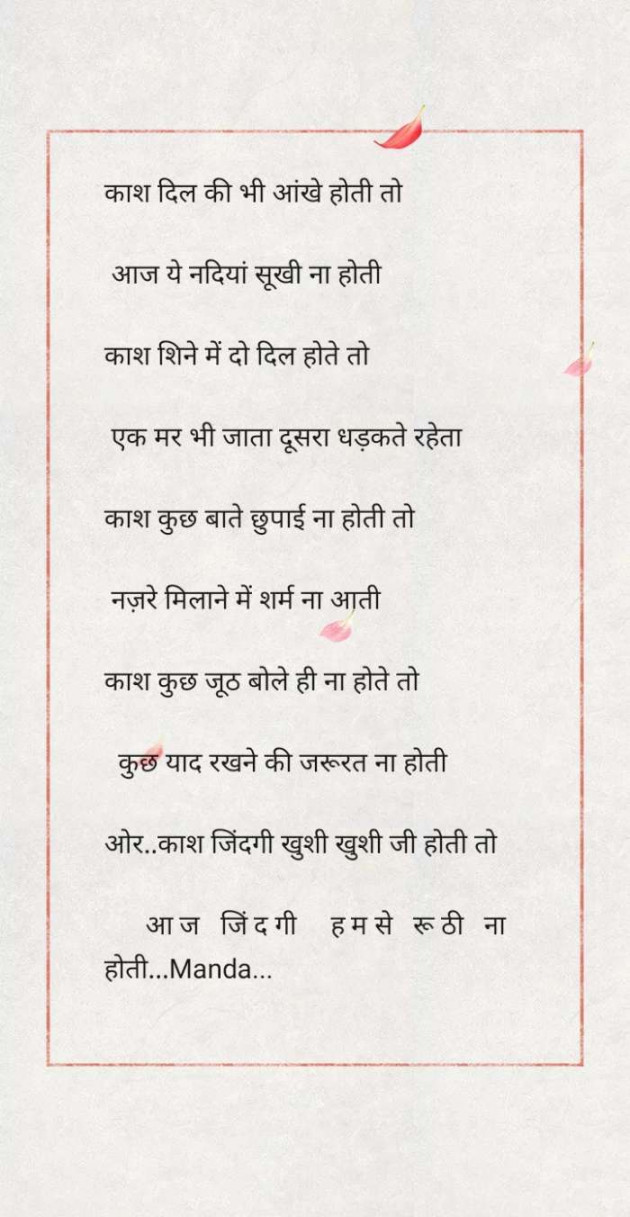 काश दिल की भी आंखे होती तो
आज ये नदियां सूखी ना होती
काश शिने में दो दिल होते तो
एक मर भी जाता दूसरा धड़कते रहेता
काश कुछ बाते छुपाई ना होती तो
नज़रे मिलाने में शर्म ना आती
काश कुछ जूठ बोले ही ना होते तो
कुछ याद रखने की जरूरत ना होती
ओर..काश जिंदगी खुशी खुशी जी होती तो
आज जिंदगी हमसे रूठी ना
होती...Manda...